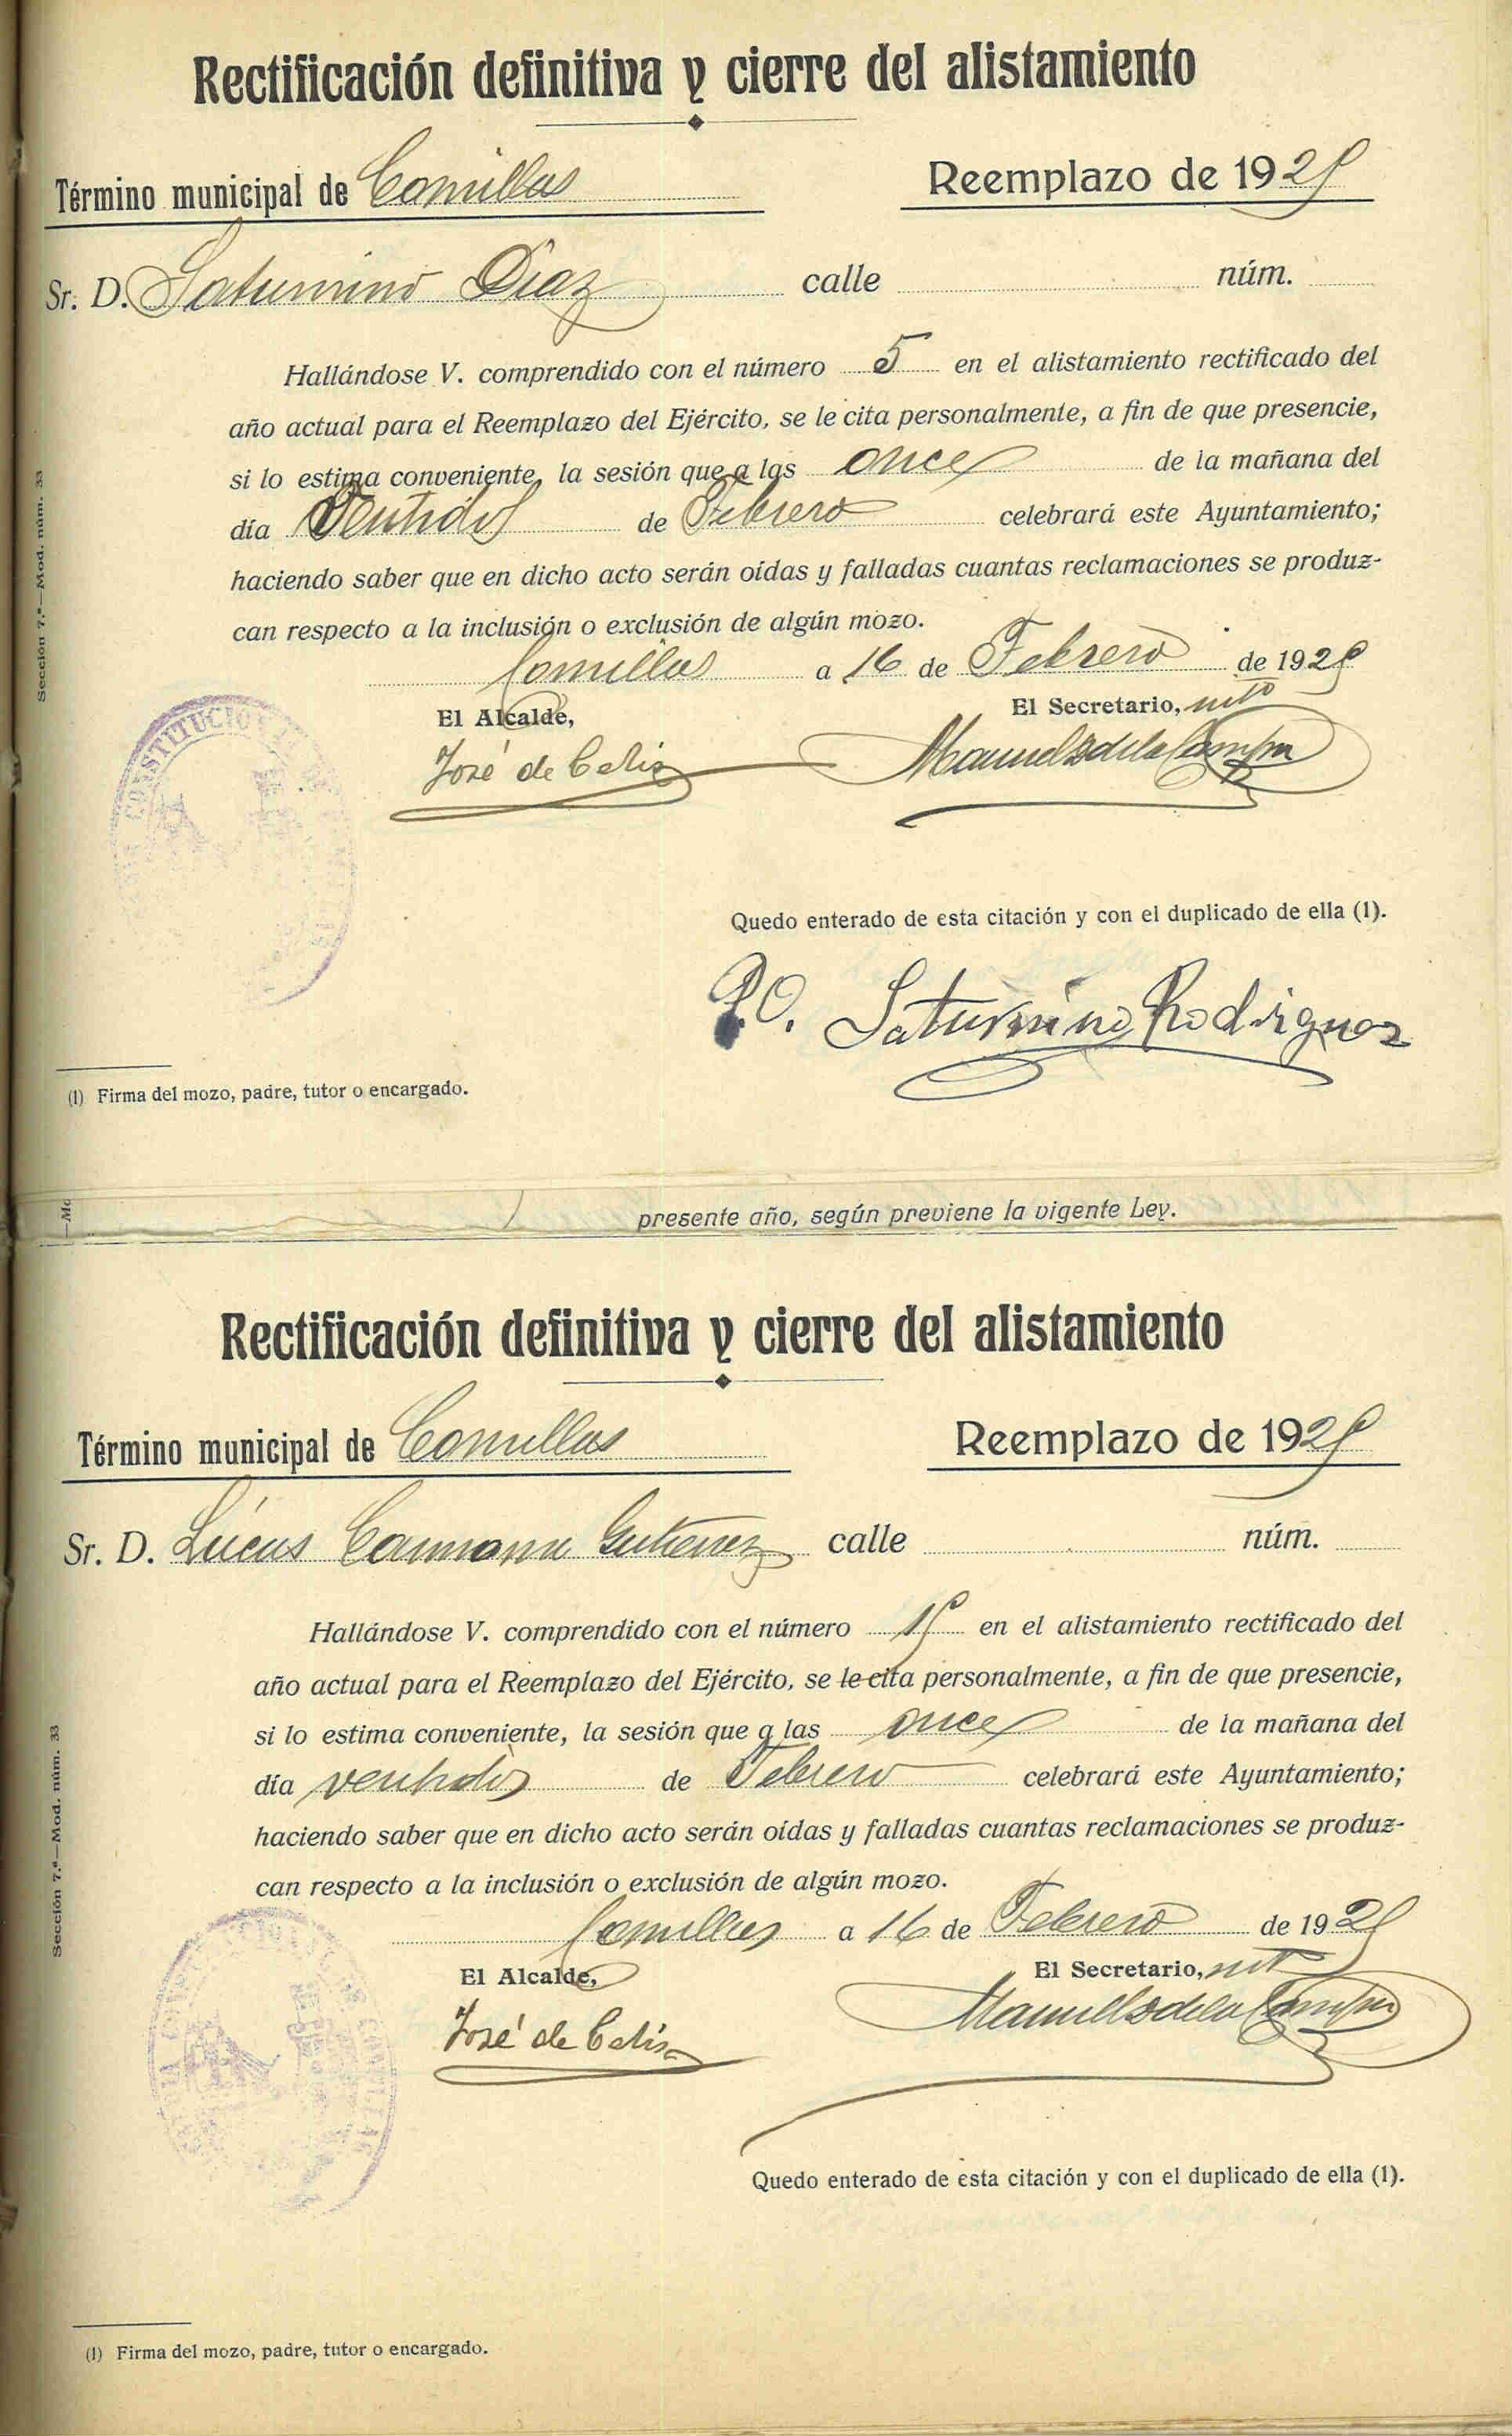 Rectificación definitiva y cierre del alistamiento
Término municipal de Comillas Reemplazo de 1925
Sr. D. Saturnino Díaz calle núm.
Hallándose V. comprendido con el número 5 en el alistamiento rectificado del
año actual para el Reemplazo del Ejército, se le cita personalmente, a fin de que presencie,
si lo estima conveniente, la sesión que a las once de la mañana del
día Ventidos de Febrero celebrará este Ayuntamiento;
haciendo saber que en dicho acto serán oídas y falladas cuantas reclamaciones se produz-
can respecto a la inclusión o exclusión de algún mozo.
Comillas a 16 de Febrero de 1925
El Alcalde, El Secretario,
José de Celis Manuel de la Campa
Sección 7.ª—Mod. núm. 33
Quedo enterado de esta citación y con el duplicado de ella (1).
P.O. Saturnino Rodriguez
(1) Firma del mozo, padre, tutor o encargado.
presente año, según previene la vigente Ley.
Rectificación definitiva y cierre del alistamiento
Término municipal de Comillas Reemplazo de 1925
Sr. D. Lucas Gutierrez calle núm.
Hallándose V. comprendido con el número en el alistamiento rectificado del
año actual para el Reemplazo del Ejército, se le cita personalmente, a fin de que presencie,
si lo estima conveniente, la sesión que a las once de la mañana del
día ventidos de Febrero celebrará este Ayuntamiento;
haciendo saber que en dicho acto serán oídas y falladas cuantas reclamaciones se produz-
can respecto a la inclusión o exclusión de algún mozo.
Comillas a 16 de Febrero de 1925
El Alcalde, El Secretario,
José de Celis Manuel de la Campa
Sección 7.ª—Mod. núm. 33
Quedo enterado de esta citación y con el duplicado de ella (1).
(1) Firma del mozo, padre, tutor o encargado.